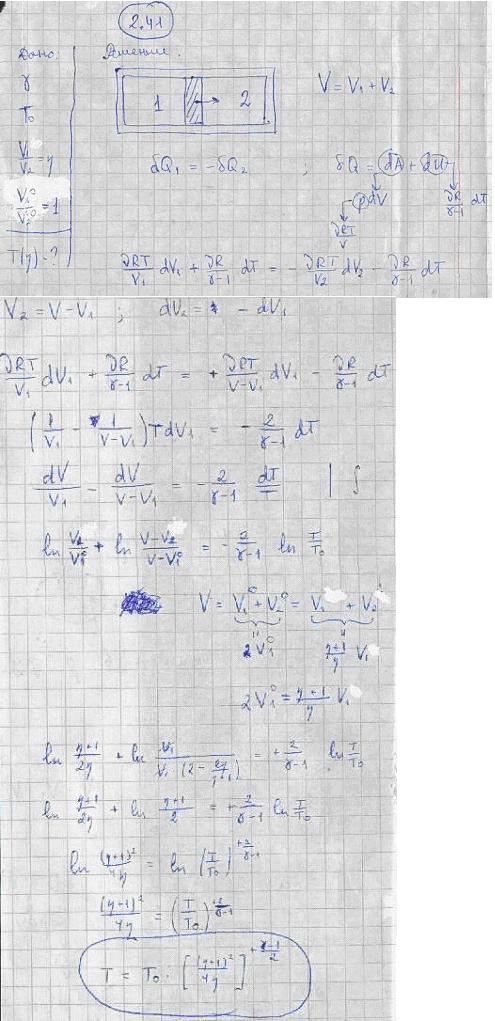 2.41
Дано: Решение.
γ
T₀
V₁/V₂ = η
V₁⁰/V₂⁰ = 1
T(η) - ?
1 → 2
V = V₁ + V₂
δQ₁ = -δQ₂ ; δQ = dA + dU
pdV
νRT/V
νR/(γ-1) dT
νRT/V₁ dV₁ + νR/(γ-1) dT = - νRT/V₂ dV₂ - νR/(γ-1) dT
V₂ = V - V₁ ; dV₂ = - dV₁
νRT/V₁ dV₁ + νR/(γ-1) dT = + νRT/(V-V₁) dV₁ - νR/(γ-1) dT
(1/V₁ - 1/(V-V₁)) T dV₁ = - 2/(γ-1) dT
dV/V₁ - dV/(V-V₁) = - 2/(γ-1) dT/T | ∫
ln V₁/V₁⁰ + ln (V-V₂)/(V-V₁⁰) = - 2/(γ-1) ln T/T₀
V = V₁⁰ + V₂⁰ = V₁ + V₂
2V₁⁰ (η+1)/η V₁
2V₁⁰ = (η+1)/η V₁
ln (η+1)/2η + ln V₁/(V₁ (2 - 2η/(η+1))) = + 2/(γ-1) ln T/T₀
ln (η+1)/2η + ln (η+1)/2 = + 2/(γ-1) ln T/T₀
ln (η+1)²/4η = ln (T/T₀)^(+2/(γ-1))
(η+1)²/4η = (T/T₀)^(+2/(γ-1))
T = T₀ · [(η+1)²/4η]^(+(γ-1)/2)